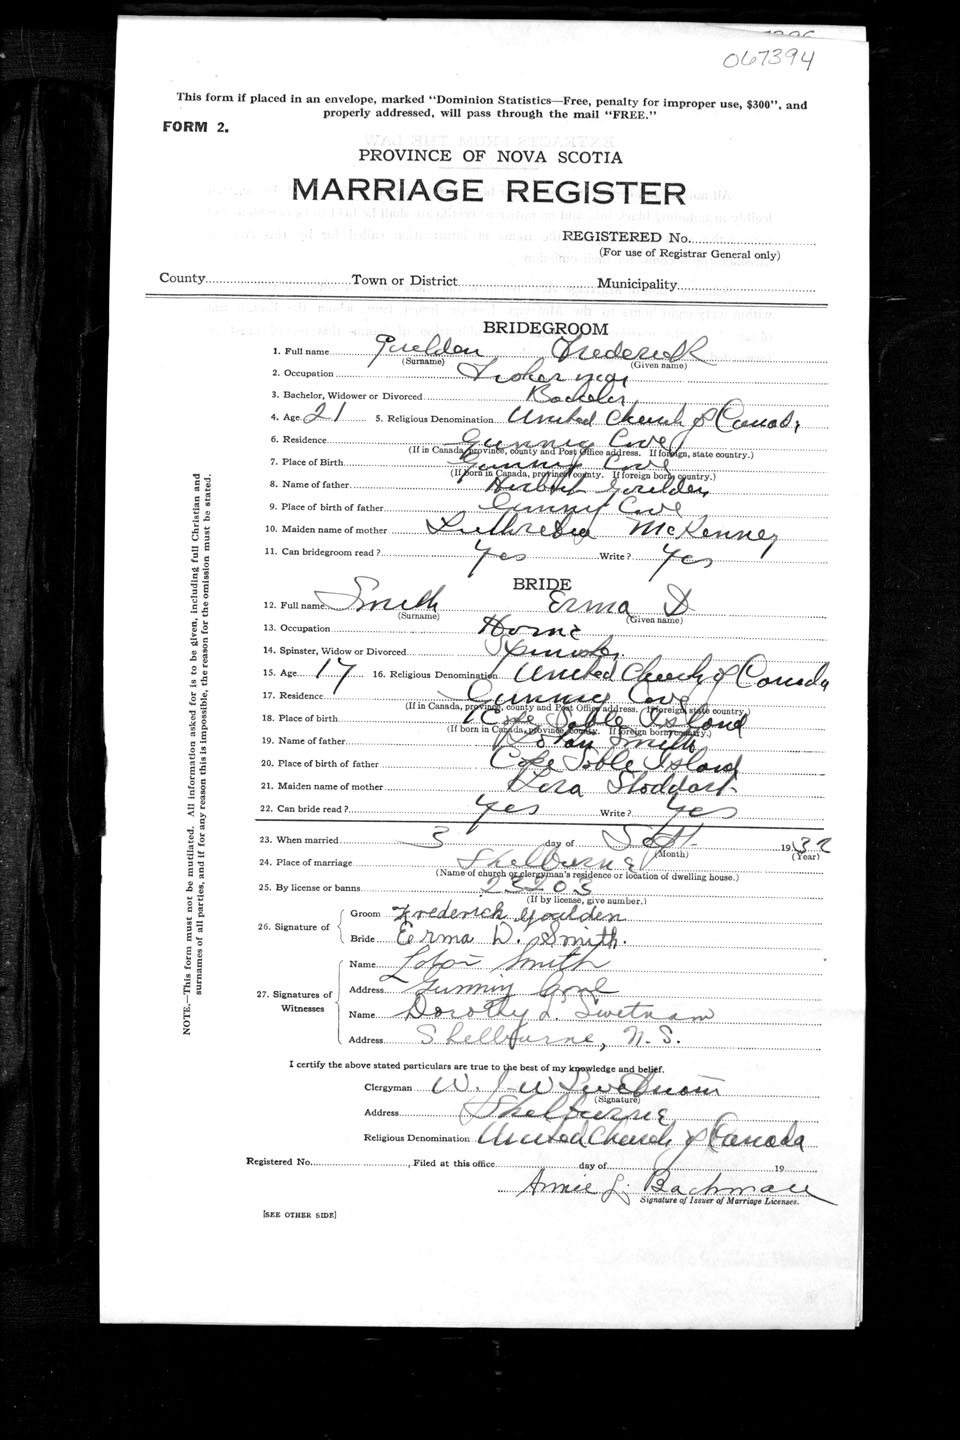 067394
This form if placed in an envelope, marked "Dominion Statistics—Free, penalty for improper use, $300", and
properly addressed, will pass through the mail "FREE."
FORM 2.
PROVINCE OF NOVA SCOTIA
MARRIAGE REGISTER
REGISTERED No.
(For use of Registrar General only)
County Town or District Municipality
BRIDEGROOM
1. Full name Goulden Frederick
(Surname) (Given name)
2. Occupation Fisherman
3. Bachelor, Widower or Divorced Bachelor
4. Age 21 5. Religious Denomination United Church of Canada
6. Residence Gunning Cove
(If in Canada, province, county and Post Office address. If foreign, state country.)
7. Place of Birth Gunning Cove
(If born in Canada, province, county. If foreign born, country.)
8. Name of father Goulden
9. Place of birth of father Gunning Cove
10. Maiden name of mother McKenney
11. Can bridegroom read? Yes Write? Yes
BRIDE
12. Full name Smith Erma D
(Surname) (Given name)
13. Occupation Home
14. Spinster, Widow or Divorced Spinster
15. Age 17 16. Religious Denomination United Church of Canada
17. Residence Gunning Cove
(If in Canada, province, county and Post Office address. If foreign, state country.)
18. Place of birth Cape Sable Island
(If born in Canada, province, county. If foreign born, country.)
19. Name of father Smith
20. Place of birth of father Cape Sable Island
21. Maiden name of mother Stoddart
22. Can bride read? Yes Write? Yes
23. When married 3 day of Sept. 1932
(Month) (Year)
24. Place of marriage Shelburne
(Name of church or clergyman's residence or location of dwelling house.)
25. By license or banns 23203
(If by license, give number.)
26. Signature of Groom Frederick Goulden
Bride Erma D. Smith.
27. Signatures of Witnesses Name Smith
Address Gunning Cove
Name Dorothy L. Swetnam
Address Shelburne, N. S.
I certify the above stated particulars are true to the best of my knowledge and belief.
Clergyman W. J. W Swetnam
(Signature)
Address Shelburne
Religious Denomination United Church of Canada
Registered No. , Filed at this office day of 19
Annie L. Bachman
Signature of Issuer of Marriage Licenses.
[SEE OTHER SIDE]
NOTE.—This form must not be mutilated. All information asked for is to be given, including full Christian and
surnames of all parties, and if for any reason this is impossible, the reason for the omission must be stated.